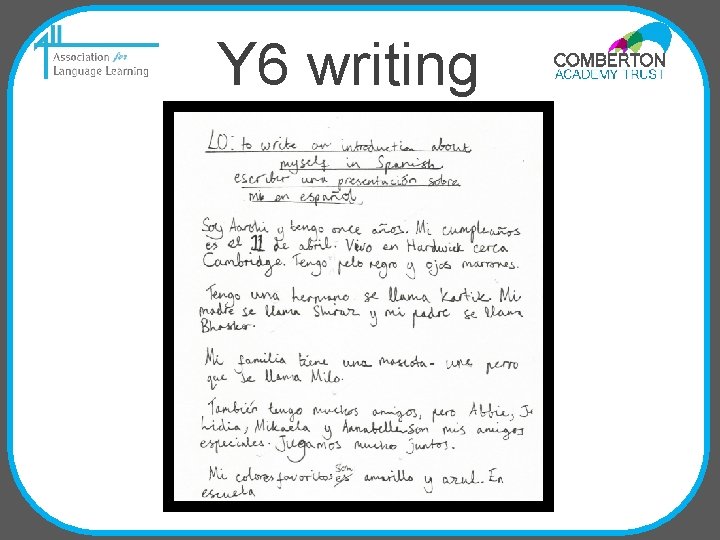 Association for
Language Learning
Y 6 writing
COMBERTON
ACADEMY TRUST
LO: to write an introduction about
myself in Spanish
escribir una presentación sobre
mi en español,
Soy Aarohi y tengo once años. Mi cumpleaños
es el 11 de abril. Vivo en Hardwick cerca
Cambridge. Tengo pelo negro y ojos marrones.
Tengo una hermano se llama Kartik. Mi
madre se llama Shiraz y mi padre se llama
Bhasker.
Mi familia tiene una mascota - une perro
que se llama Milo.
También tengo muchos amigos, pero Abbie,
Lidia, Mikaela y Annabelle son mis amigos
especiales. Jugamos mucho juntos.
Mi colores favoritos son amarillo y azul. En
escuela